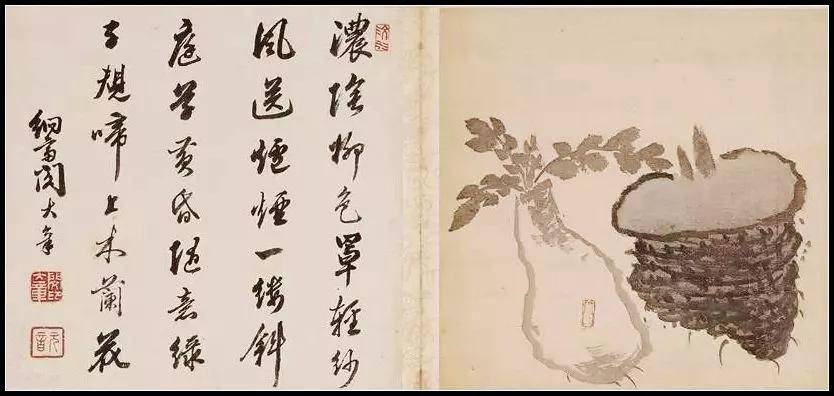 濃陰柳色罩輕紗
風送爐煙一縷斜
庭草黃昏隨意綠
子規啼上木蘭花
大